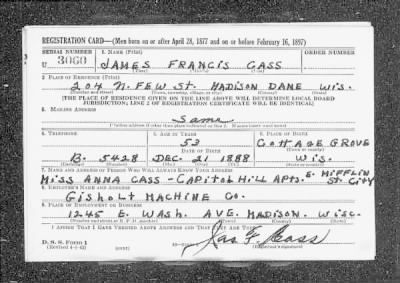 REGISTRATION CARD—(Men born on or after April 28, 1877 and on or before February 16, 1897)
SERIAL NUMBER 1. NAME (Print) ORDER NUMBER
U 3060 JAMES FRANCIS CASS
2. PLACE OF RESIDENCE (Print)
204 N. FEW ST. MADISON DANE WIS.
(Number and street) (Town, township, village, or city) (County) (State)
[THE PLACE OF RESIDENCE GIVEN ON THE LINE ABOVE WILL DETERMINE LOCAL BOARD
JURISDICTION; LINE 2 OF REGISTRATION CERTIFICATE WILL BE IDENTICAL]
3. MAILING ADDRESS
Same
[Mailing address if other than place indicated on line 2. If same insert word same]
4. TELEPHONE 5. AGE IN YEARS 6. PLACE OF BIRTH
53 COTTAGE GROVE
B. 5428 DEC. 21 1888 WIS.
7. NAME AND ADDRESS OF PERSON WHO WILL ALWAYS KNOW YOUR ADDRESS
MISS ANNA CASS - CAPITOL HILL APTS. E. MIFFLIN ST. CITY
8. EMPLOYER'S NAME AND ADDRESS
GISHOLT MACHINE CO.
9. PLACE OF EMPLOYMENT OR BUSINESS
1245 E. WASH. AVE. MADISON. WISC.
(Number and street or R. F. D. number) (Town) (County) (State)
I AFFIRM THAT I HAVE VERIFIED ABOVE ANSWERS AND THAT THEY ARE TRUE.
D. S. S. Form 1
(Revised 4-1-42) (over) Jas F. Cass